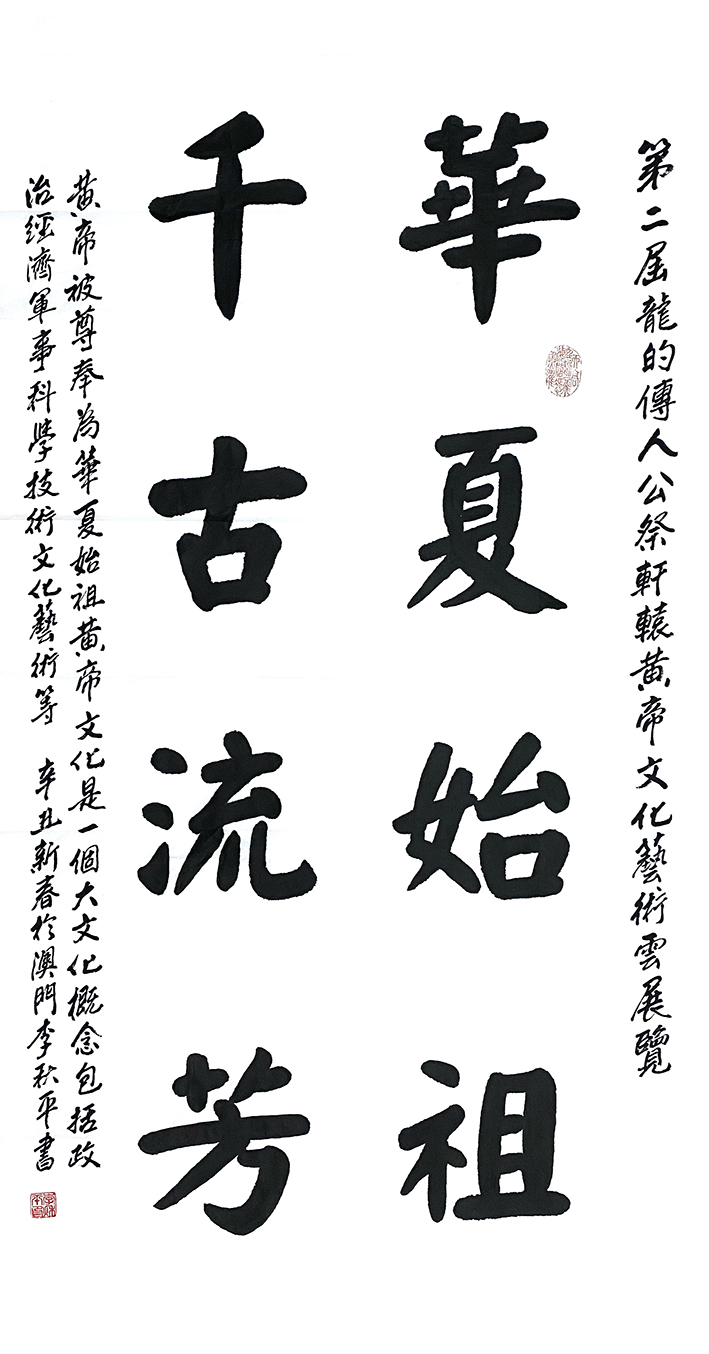 第二屆龍的傳人公祭軒轅黃帝文化藝術雲展覽
華夏始祖
千古流芳
黃帝被尊奉為華夏始祖黃帝文化是一個大文化概念包括政
治經濟軍事科學技術文化藝術等 辛丑新春於澳門李秋平書